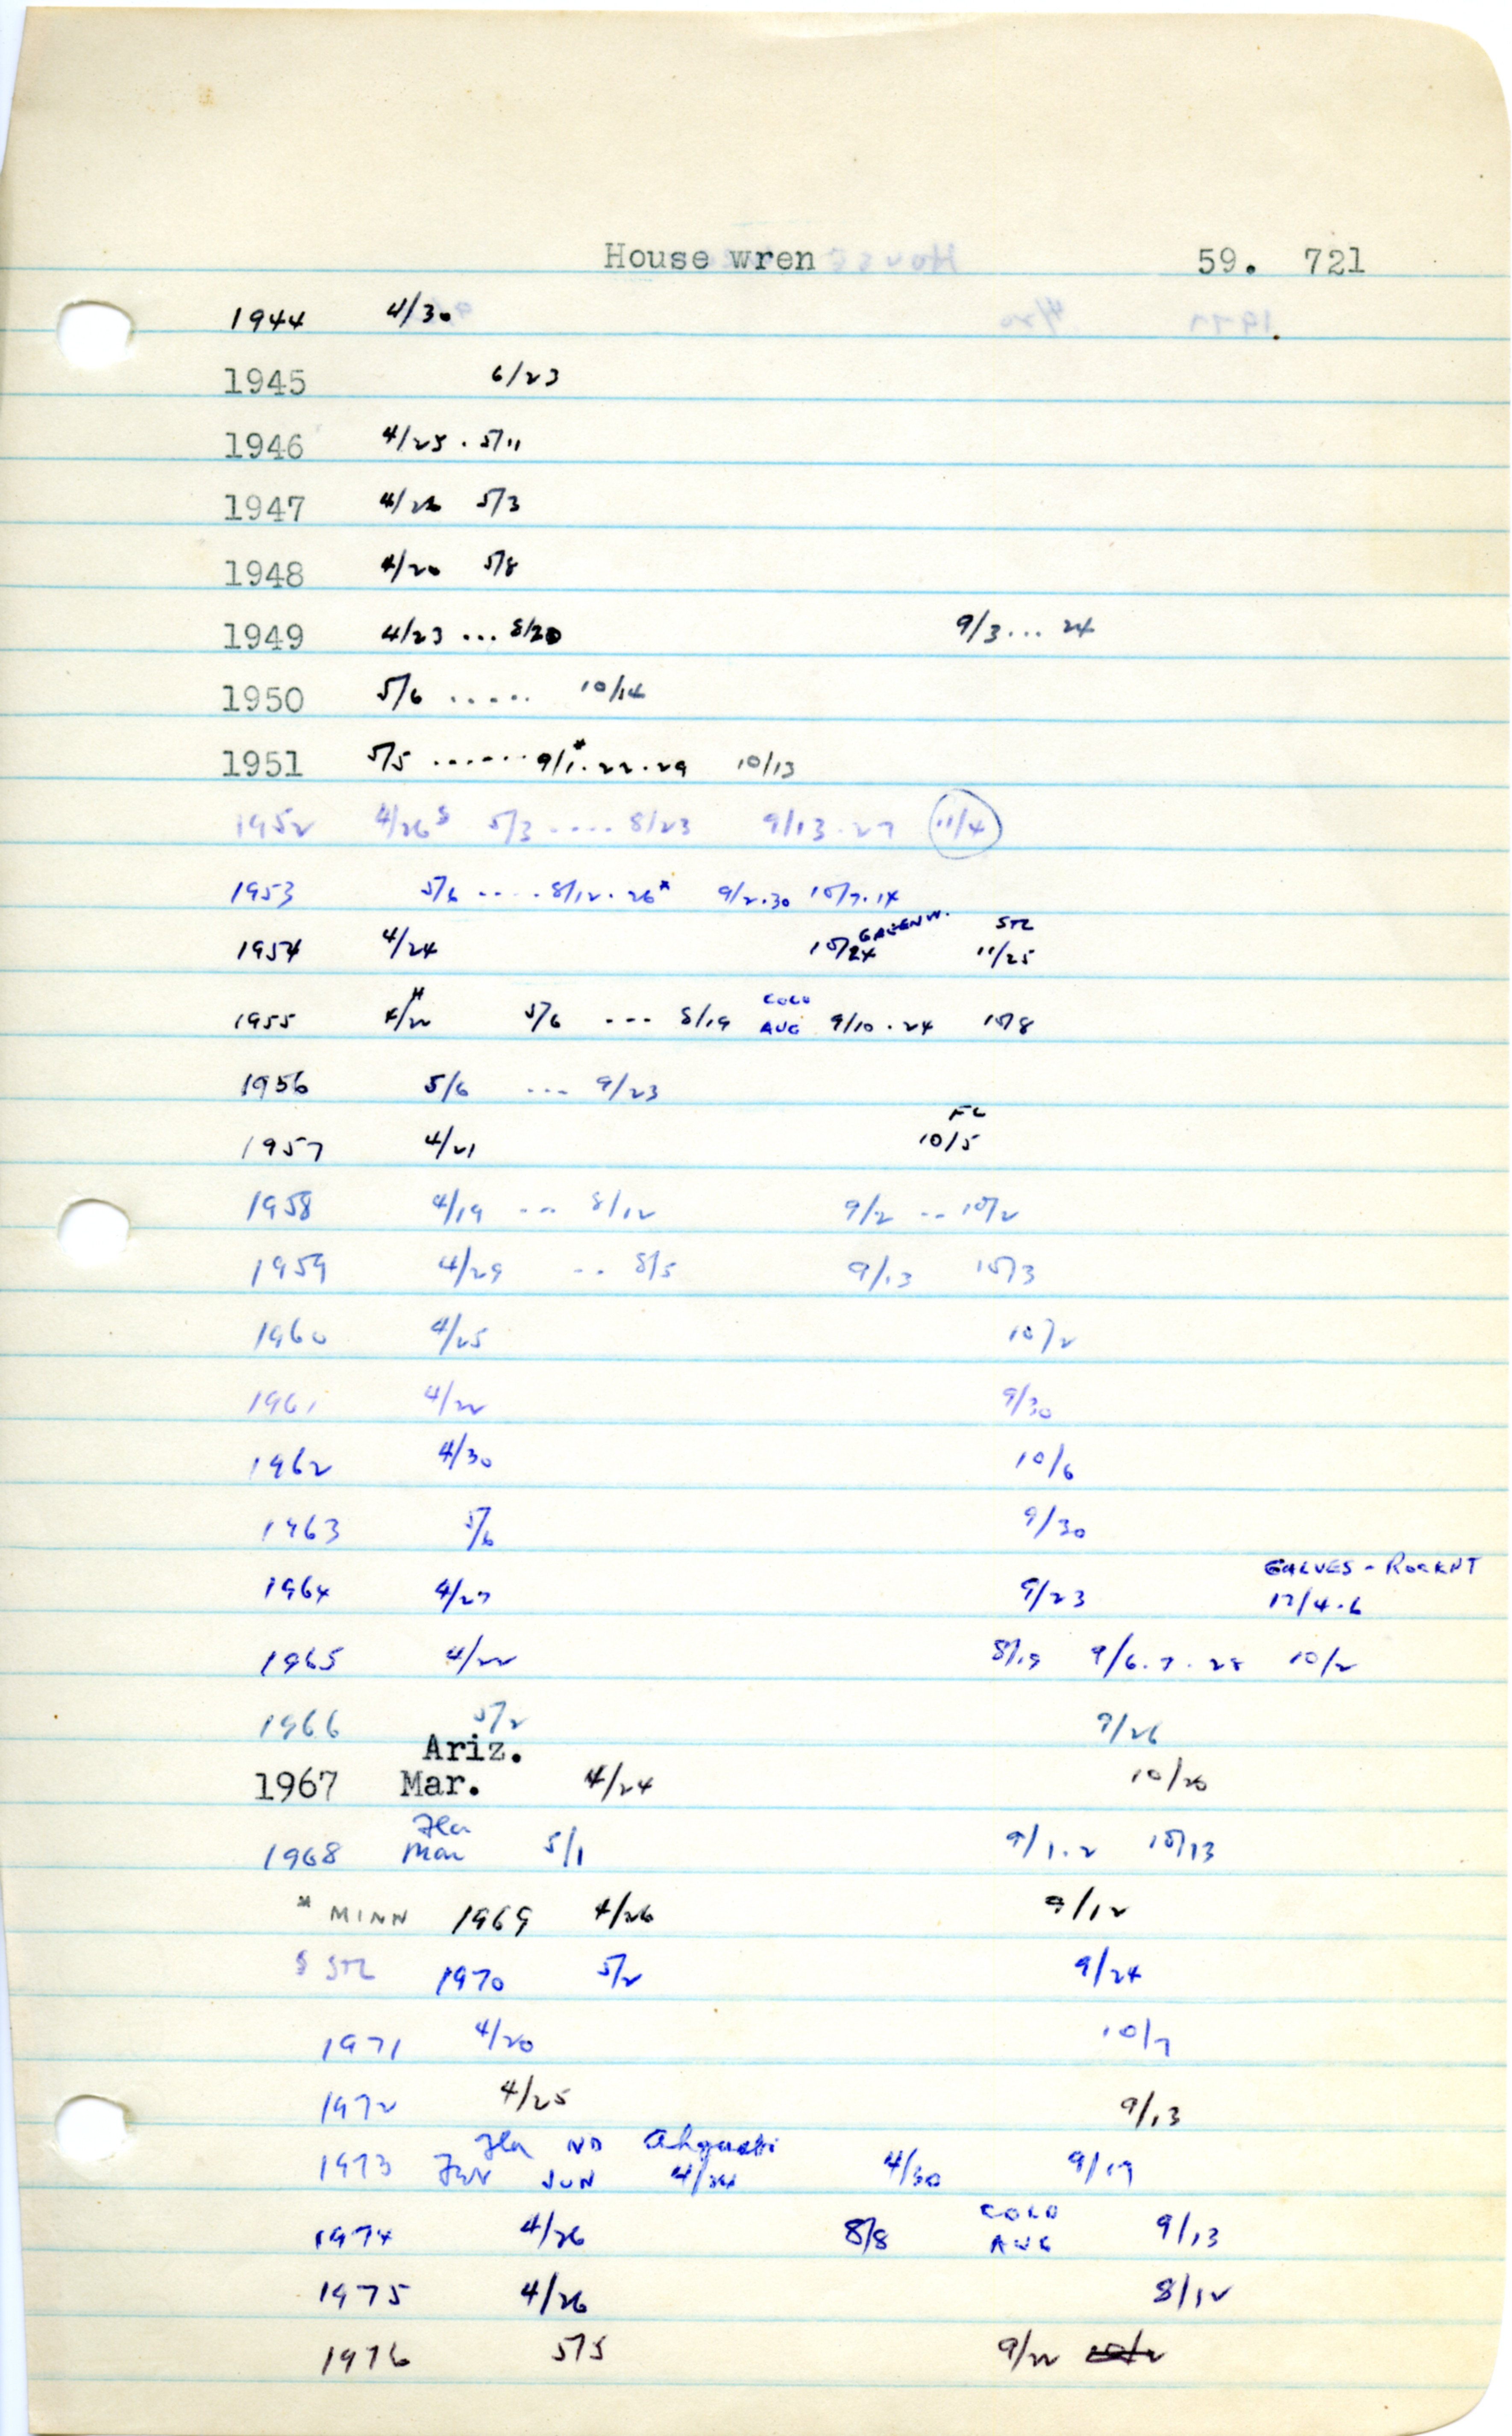 House wren 59. 721
1944 4/30
1945 6/23
1946 4/25 . 5/11
1947 4/26 5/3
1948 4/20 5/8
1949 4/23 ... 8/20 9/3 ... 24
1950 5/6 ..... 10/14
1951 5/5 ...... 9/1* . 22 . 29 10/13
1952 4/26§ 5/3 .... 8/23 9/13 . 27 11/4
1953 5/6 .... 8/12 . 26* 9/2 . 30 10/7 . 14
GREENW. STL
1954 4/24 10/24 11/25
COLO
1955 4/22 5/6 --- 8/19 AUG 9/10 . 24 10/8
1956 5/6 --- 9/23
FC
1957 4/21 10/5
1958 4/19 --- 8/12 9/2 -- 10/2
1959 4/29 -- 8/5 9/13 10/3
1960 4/25 10/2
1961 4/22 9/30
1962 4/30 10/6
1963 5/6 9/30
GALVES - ROCKPT
1964 4/27 9/23 12/4.6
1965 4/22 8/19 9/6 . 7 . 28 10/2
1966 5/2 9/26
Ariz.
1967 Mar. 4/24 10/20
Fla
1968 Mar 5/1 9/1 . 2 10/13
* MINN 1969 4/26 9/12
§ STL 1970 5/2 9/24
1971 4/20 10/7
1972 4/25 9/13
Fla ND
1973 JUN 4/30 9/17
COLO
1974 4/26 8/8 AUG 9/13
1975 4/26 8/12
1976 5/5 9/22